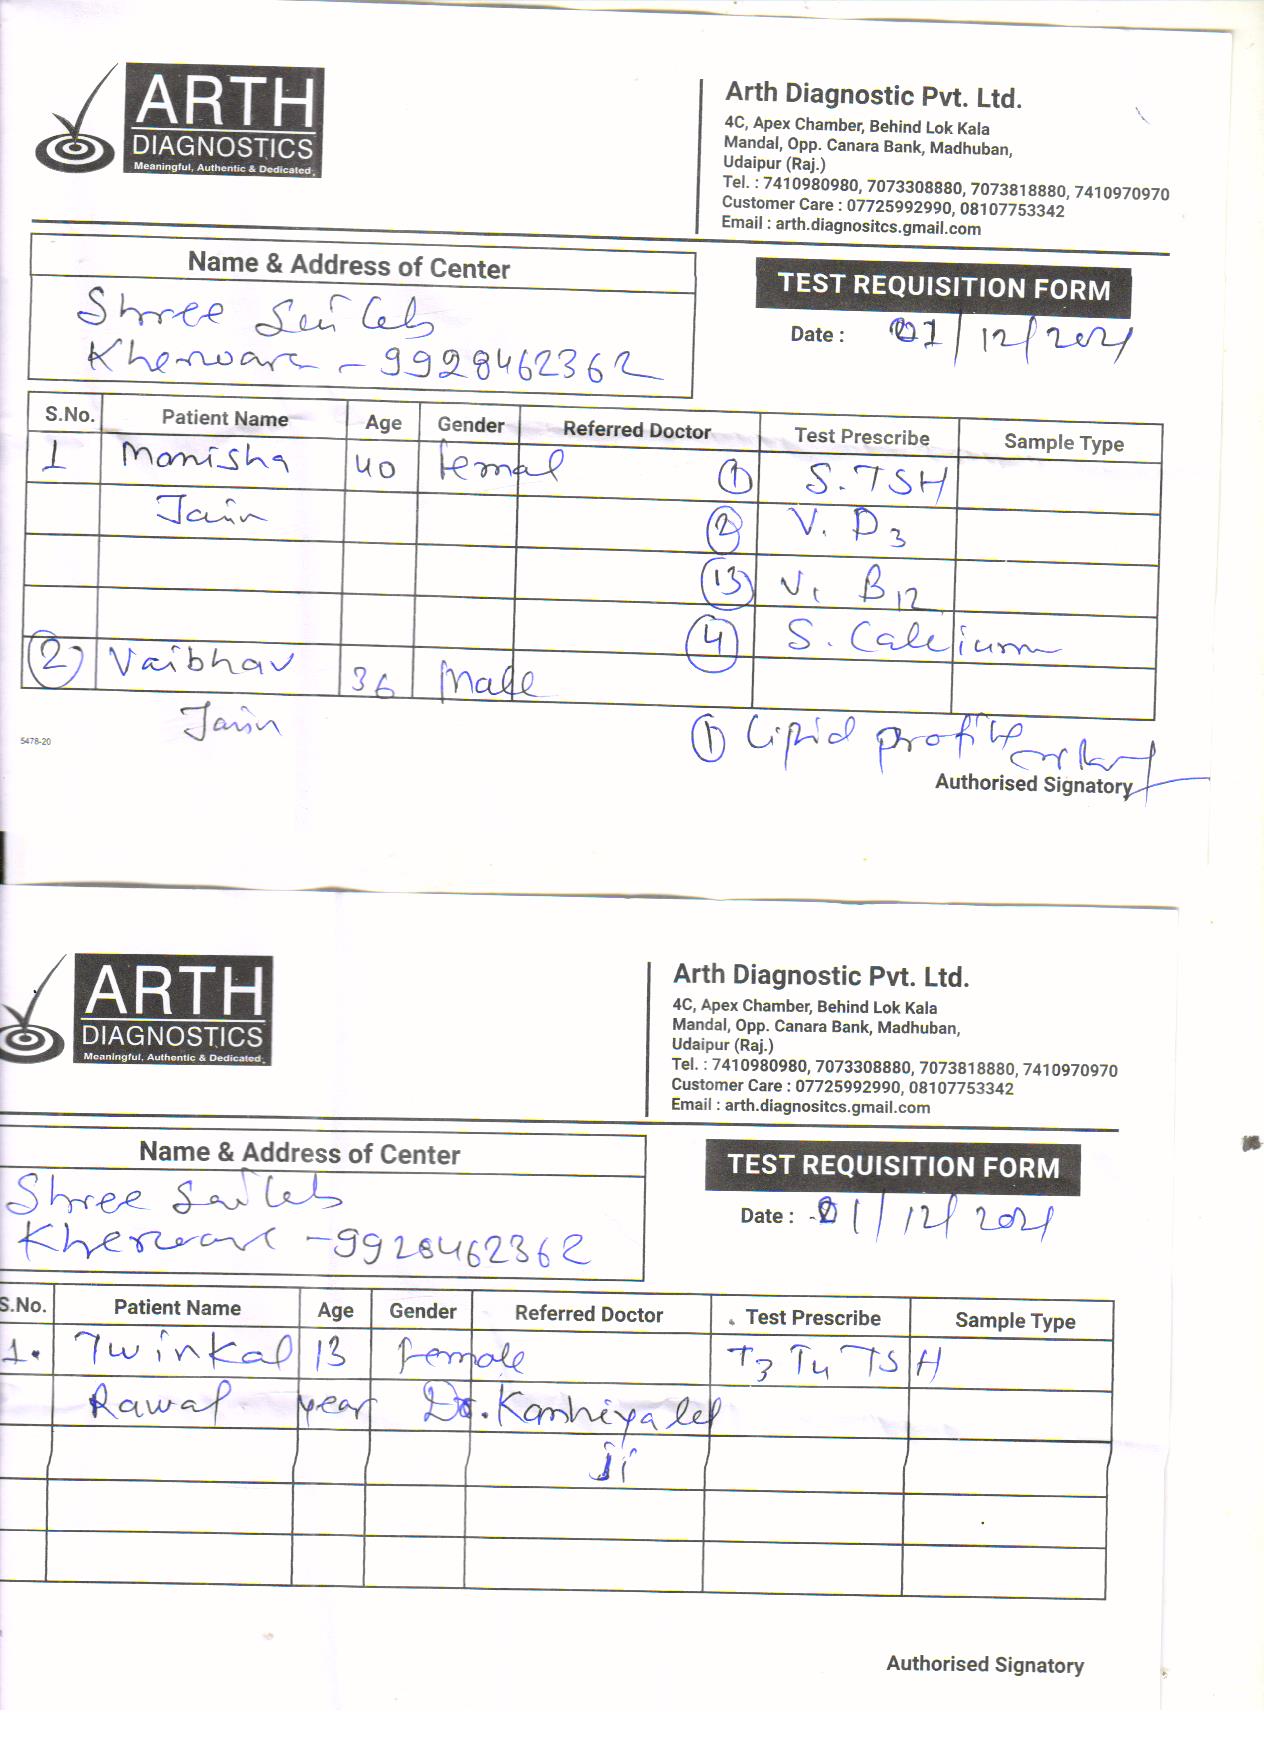 ARTH
DIAGNOSTICS
Meaningful, Authentic & Dedicated.
Arth Diagnostic Pvt. Ltd.
4C, Apex Chamber, Behind Lok Kala
Mandal, Opp. Canara Bank, Madhuban,
Udaipur (Raj.)
Tel. : 7410980980, 7073308880, 7073818880, 7410970970
Customer Care : 07725992990, 08107753342
Email : arth.diagnositcs.gmail.com
Name & Address of Center
TEST REQUISITION FORM
Shree Sai Lab
Kherwara - 9928462362
Date : 01/12/2021
S.No. Patient Name Age Gender Referred Doctor Test Prescribe Sample Type
1 Manisha 40 femal ① S.TSH
Jain ② V. D3
13 V. B12
④ S. Calcium
② Vaibhav 36 Male
Jain ① Lipid profile
5478-20
Authorised Signatory
ARTH
DIAGNOSTICS
Meaningful, Authentic & Dedicated.
Arth Diagnostic Pvt. Ltd.
4C, Apex Chamber, Behind Lok Kala
Mandal, Opp. Canara Bank, Madhuban,
Udaipur (Raj.)
Tel. : 7410980980, 7073308880, 7073818880, 7410970970
Customer Care : 07725992990, 08107753342
Email : arth.diagnositcs.gmail.com
Name & Address of Center
TEST REQUISITION FORM
Shree Sai Lab
Kherwara - 9928462362
Date : 01/12/2021
S.No. Patient Name Age Gender Referred Doctor Test Prescribe Sample Type
1. Twinkal 13 female T3 T4 TSH
Rawal year Dr. Kanhiyalal
Ji
Authorised Signatory